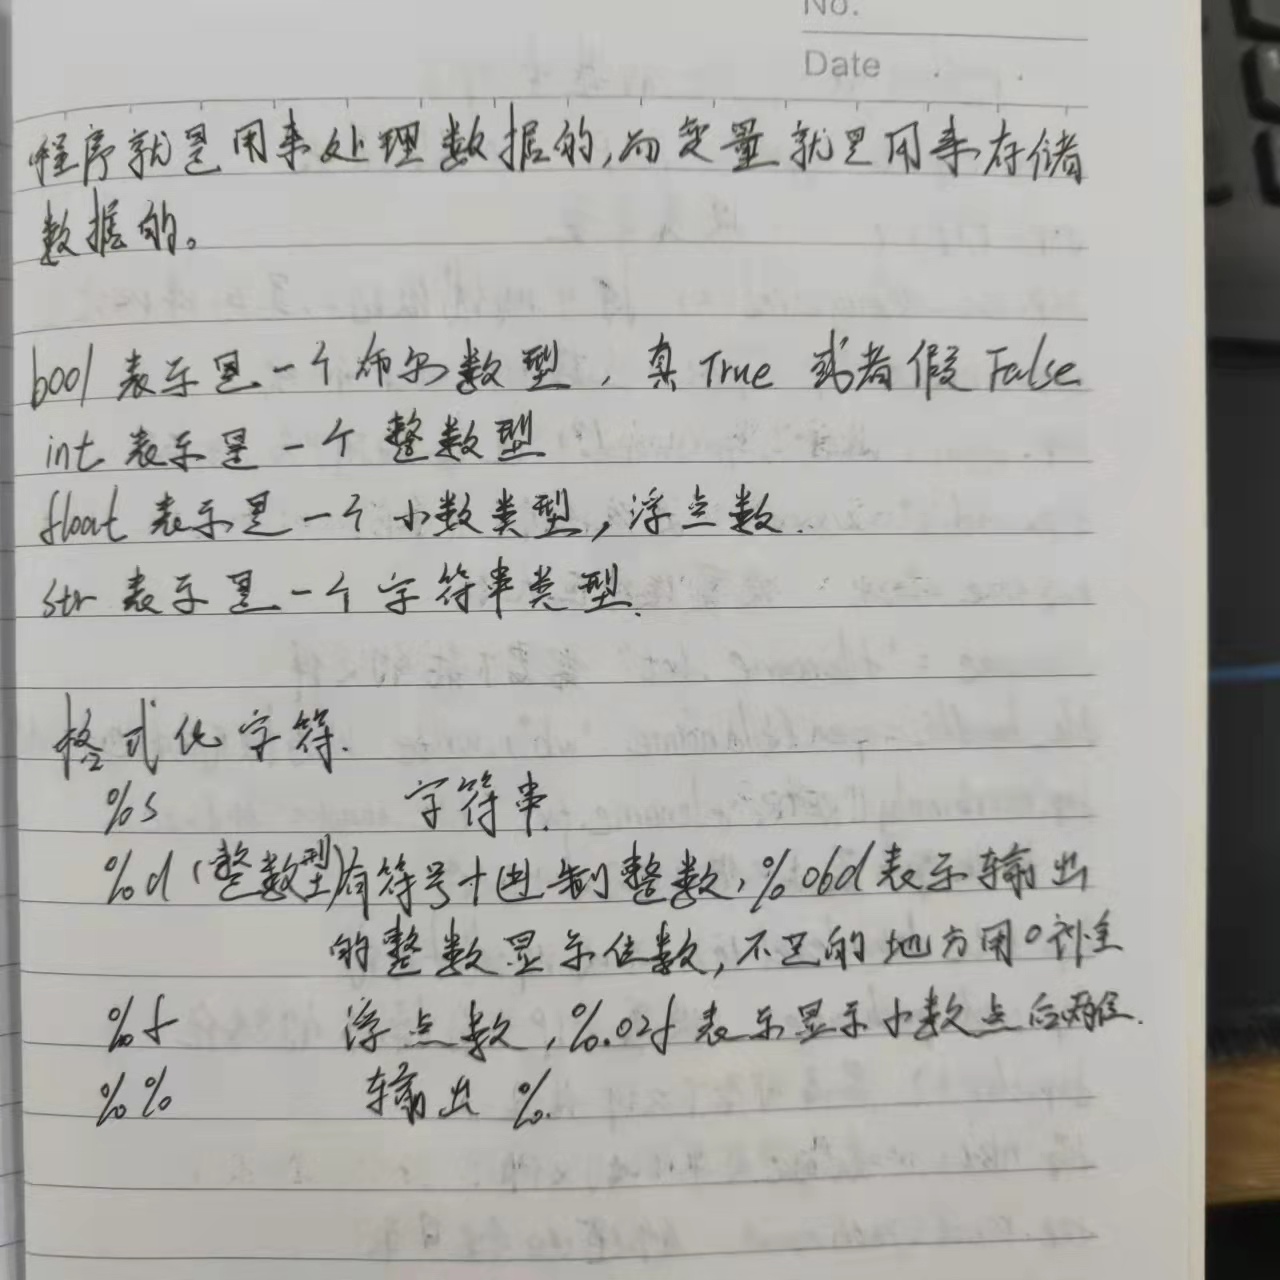 No.
Date
程序就是用来处理数据的,而变量就是用来存储
数据的。
bool 表示是一个布尔数型,真 True 或者假 False
int 表示是一个 整数型
float 表示是一个 小数类型,浮点数.
str 表示是一个 字符串类型.
格式化字符.
%s 字符串.
%d (整数型)有符号十进制整数,%06d表示输出
的整数显示位数,不足的地方用0补全
%f 浮点数,%.02f 表示显示小数点后两位.
%% 输出 %.